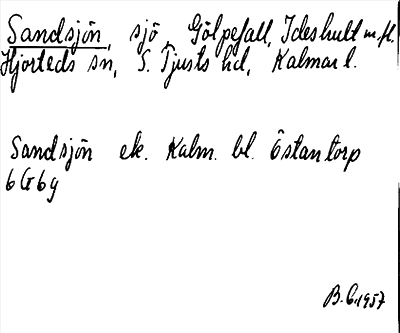 Sandsjön, sjö, Gölpefall, Ideshult m.fl.
Hjorteds sn, S. Tjusts hd, Kalmar l.
Sandsjön ek. Kalm. bl. Östantorp
6 G 6 g
B.C. 1957